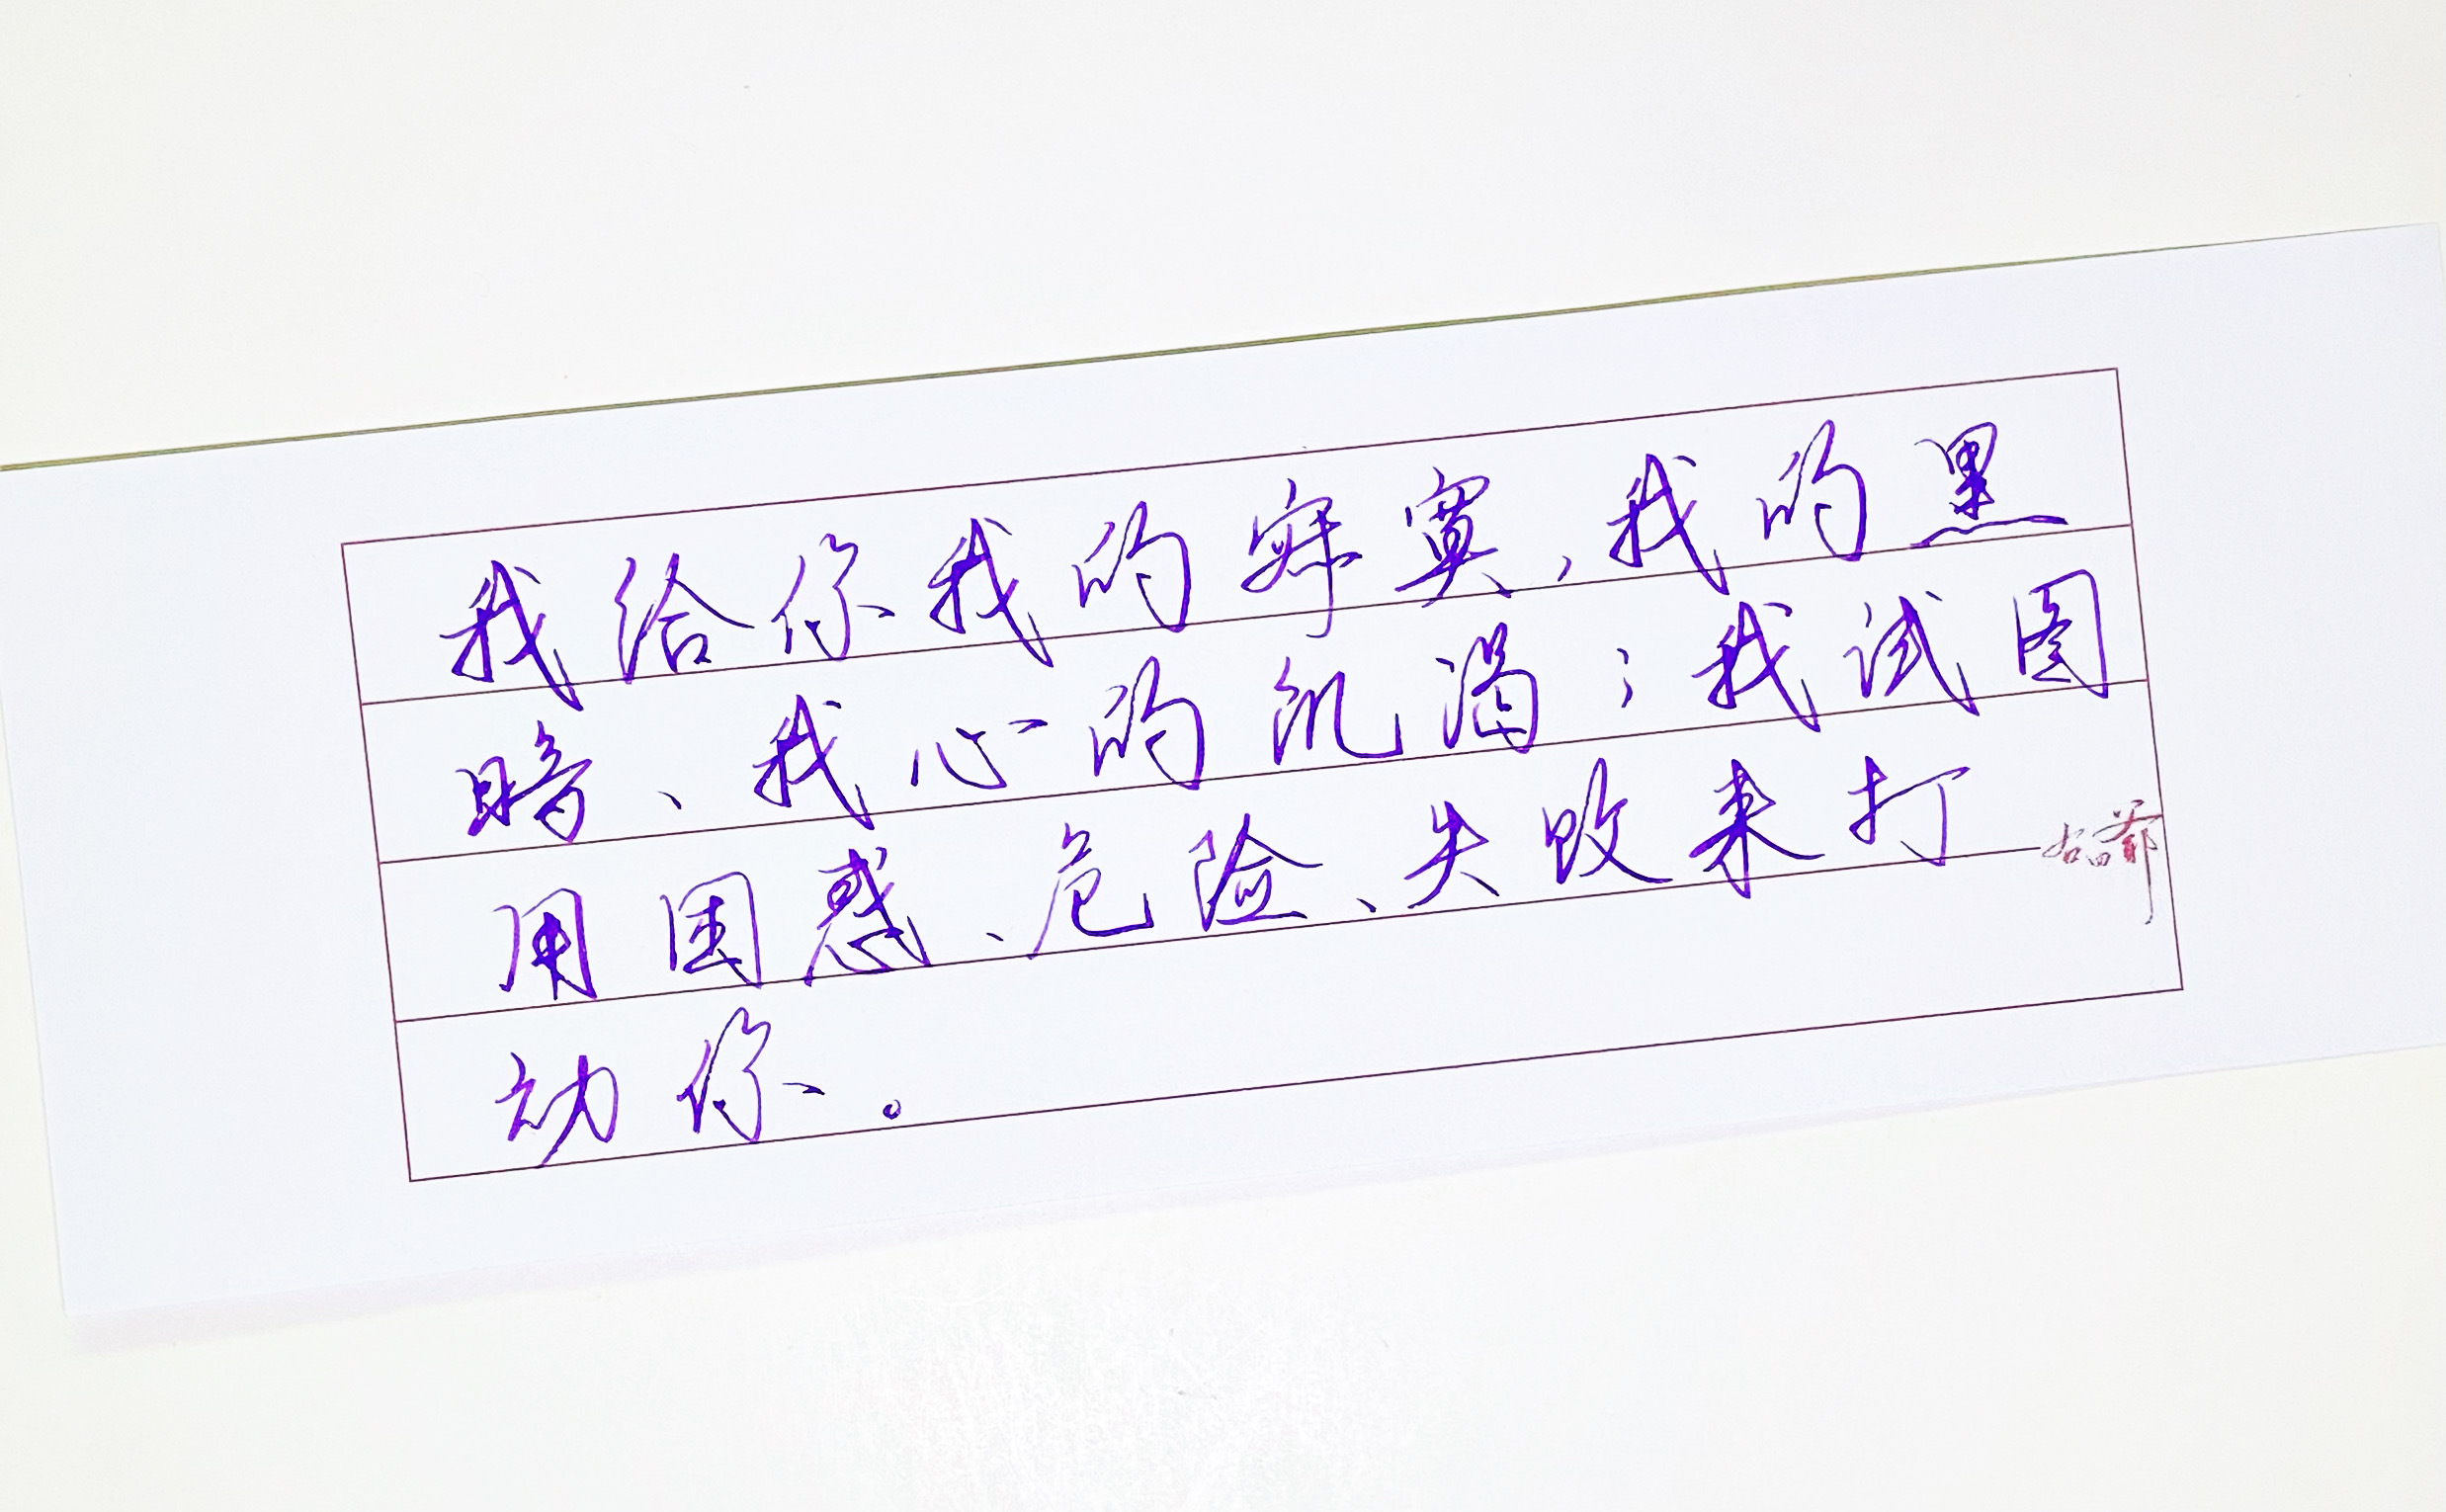 我给你我的寂寞、我的黑
暗、我心的饥渴；我试图
用困惑、危险、失败来打
动你。